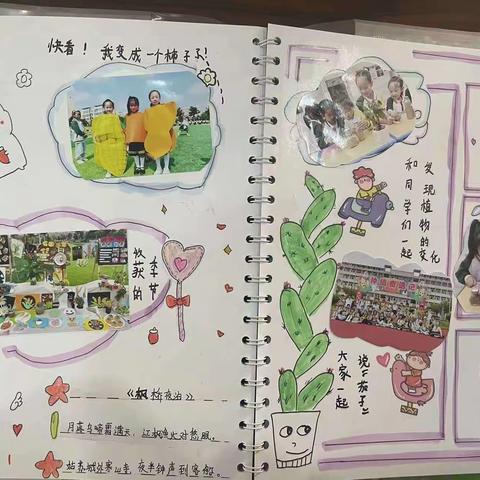 快看！我变成一个柿子了！
收获的
季节
《枫桥夜泊》
月落乌啼霜满天，江枫渔火对愁眠。
姑苏城外寒山寺，夜半钟声到客船。
和同学们一起
发现植物的变化
大家一起
说“茄子”